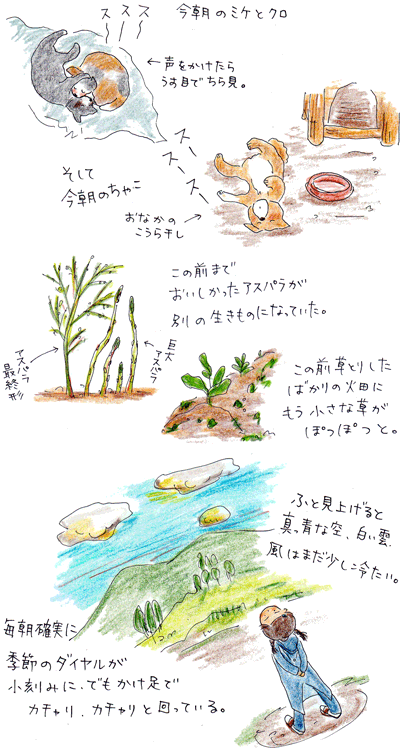 今朝のミケとクロ
ス
ス
ス
←声をかけたら
うす目でちら見。
スー
スー
スー
そして
今朝のちゃこ
おなかの
こうら干し
この前まで
おいしかったアスパラが
別の生きものになっていた。
アスパラ
最終形
巨大
アスパラ
この前草とりした
ばかりの畑に
もう小さな草が
ぽつぽつと。
ふと見上げると
真っ青な空、白い雲
風はまだ少し冷たい。
毎朝確実に
季節のダイヤルが
小刻みに、でもかけ足で
カチャリ、カチャリと回っている。